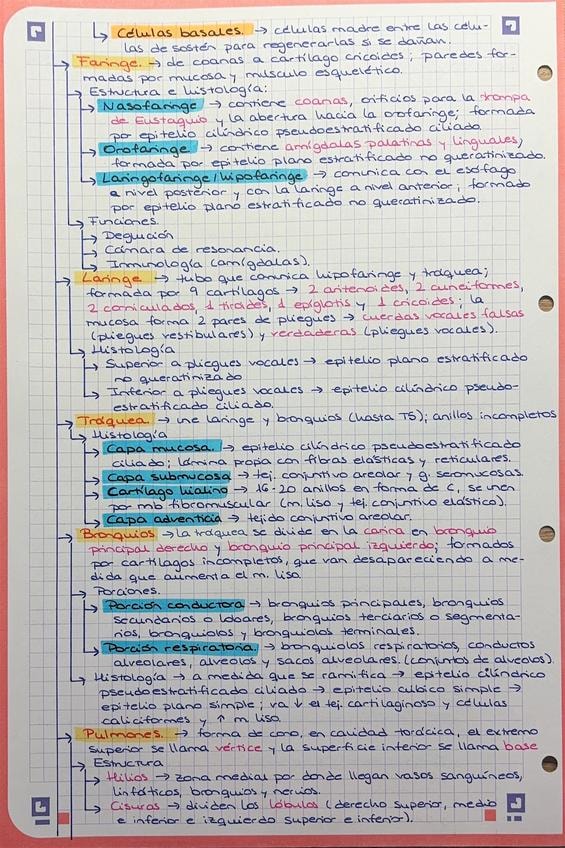 Células basales. → células madre entre las célu-
las de sostén para regenerarlas si se dañan.
Faringe. → de coanas a cartílago cricoides; paredes for-
madas por mucosa y músculo esquelético.
Estructura e histología:
Nasofaringe → contiene coanas, orificios para la trompa
de Eustaquio y la abertura hacia la orofaringe; formada
por epitelio cilíndrico pseudoestratificado ciliado.
Orofaringe → contiene amígdalas palatinas y linguales;
formada por epitelio plano estratificado no queratinizado.
Laringofaringe/hipofaringe → comunica con el esófago
a nivel posterior y con la laringe a nivel anterior; formado
por epitelio plano estratificado no queratinizado.
Funciones.
Deglución
Cámara de resonancia.
Inmunología (amígdalas).
Laringe → tubo que comunica hipofaringe y tráquea;
formada por 9 cartílagos → 2 aritenoides, 2 cuneiformes,
2 corniculados, 1 tiroides, 1 epiglotis y 1 cricoides; la
mucosa forma 2 pares de pliegues → cuerdas vocales falsas
(pliegues vestibulares) y verdaderas (pliegues vocales).
Histología
Superior a pliegues vocales → epitelio plano estratificado
no queratinizado
Inferior a pliegues vocales → epitelio cilíndrico pseudo-
estratificado ciliado.
Tráquea. → une laringe y bronquios (hasta T5); anillos incompletos
Histología
Capa mucosa. → epitelio cilíndrico pseudoestratificado
ciliado; lámina propia con fibras elásticas y reticulares.
Capa submucosa → tej. conjuntivo areolar y g. seromucosas.
Cartílago hialino → 16-20 anillos en forma de C, se unen
por mb fibromuscular (m. liso y tej. conjuntivo elástico).
Capa adventicia → tejido conjuntivo areolar.
Bronquios → la tráquea se divide en la carina en bronquio
principal derecho y bronquio principal izquierdo; formados
por cartílagos incompletos, que van desapareciendo a me-
dida que aumenta el m. liso.
Porciones.
Porción conductora → bronquios principales, bronquios
secundarios o lobares, bronquios terciarios o segmenta-
rios, bronquiolos y bronquiolos terminales.
Porción respiratoria. → bronquiolos respiratorios, conductos
alveolares, alveolos y sacos alveolares. (conjuntos de alveolos).
Histología → a medida que se ramifica → epitelio cilíndrico
pseudoestratificado ciliado → epitelio cúbico simple →
epitelio plano simple; va ↓ el tej. cartilaginoso y células
caliciformes y ↑ m. liso.
Pulmones. → forma de cono, en cavidad torácica, el extremo
superior se llama vértice y la superficie inferior se llama base
Estructura
Hilios → zona medial por donde llegan vasos sanguíneos,
linfáticos, bronquios y nervios.
Cisuras → dividen los lóbulos (derecho superior, medio
e inferior e izquierdo superior e inferior).